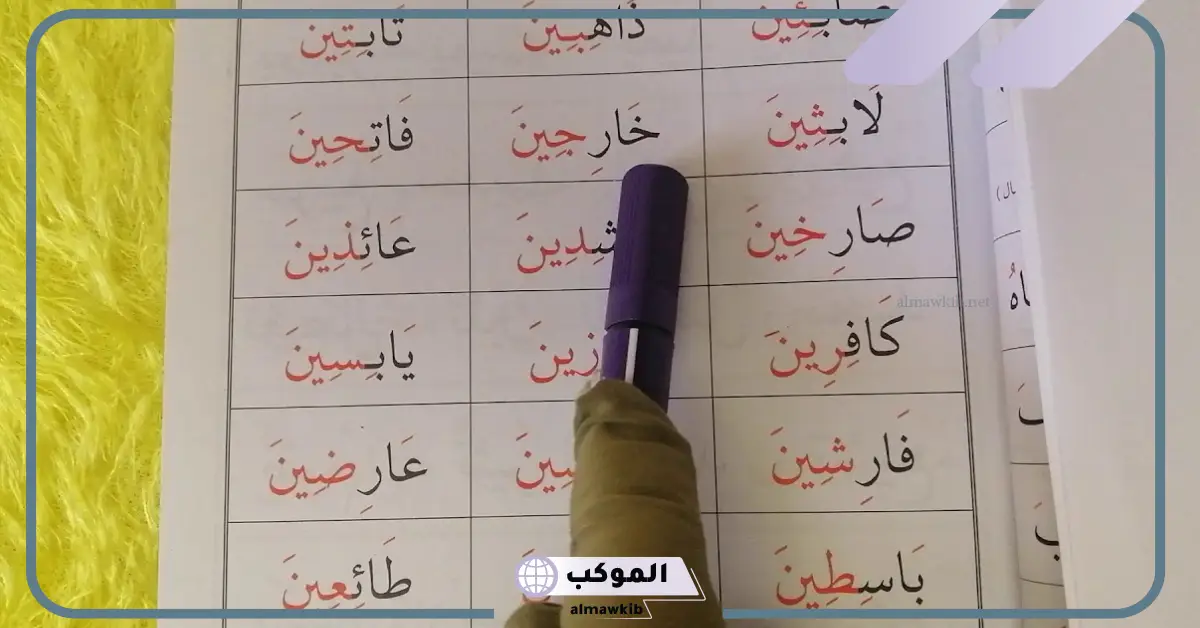 صَابِئِينَ ذَاهِبِينَ تَابِتِينَ
لَابِثِينَ خَارِجِينَ فَاتِحِينَ
صَارِخِينَ عَائِذِينَ
كَافِرِينَ يَابِسِينَ
فَارِشِينَ عَارِضِينَ
بَاسِطِينَ طَائِعِينَ
almawkib.net
الموكب
almawkib